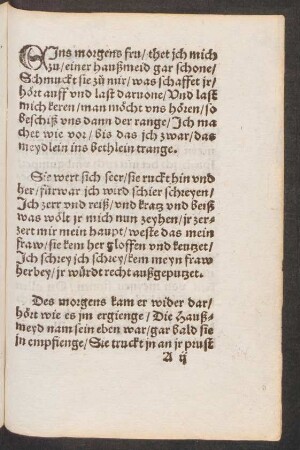 EIns morgens fru / thet jch mich
zu / einer haußmeid gar schone /
Schmuckt sie zů nur / was schaffet jr /
hört auff vnd last daruone / Vnd last
mich keren / man möcht vns hören / so
beschiß vns dann der range / Jch ma
chet wie vor / bis das jch zwar / das
meydlein ins bethlein trange.
Sie wert sich seer / sie ruckt hin vnd
her / fürwar jch wird schier schreyen /
Jch zerr vnd reiß / vnd kratz vnd beiß
was wölt jr mich nun zeyhen / jr zer-
zert mir mein haupt / weste das mein
fraw / sie kem her gloffen vnd keutzet /
Jch schrey jch schrey / kem meyn fraw
herbey / jr würdt recht außgeputzet.
Des morgens kam er wider dar /
hört wie es jm ergienge / Die Hauß-
meyd nam sein eben war / gar bald sie
in empfienge / Sie truckt in an jr prust
A ij